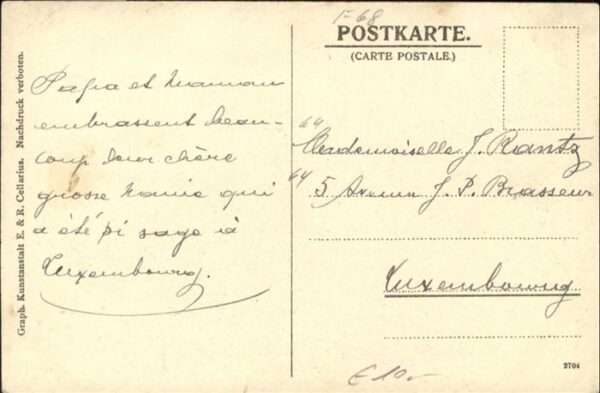 F-68
POSTKARTE.
(CARTE POSTALE.)
Graph. Kunstanstalt E. & R. Cellarius. Nachdruck verboten.
Papa et maman
embrassent beau-
coup leur chère
grosse qui
a été si sage à
Luxembourg.
64
Mademoiselle J. Rantz
64
5 Avenue J. P. Brasseur
Luxembourg
2704
€ 10.-